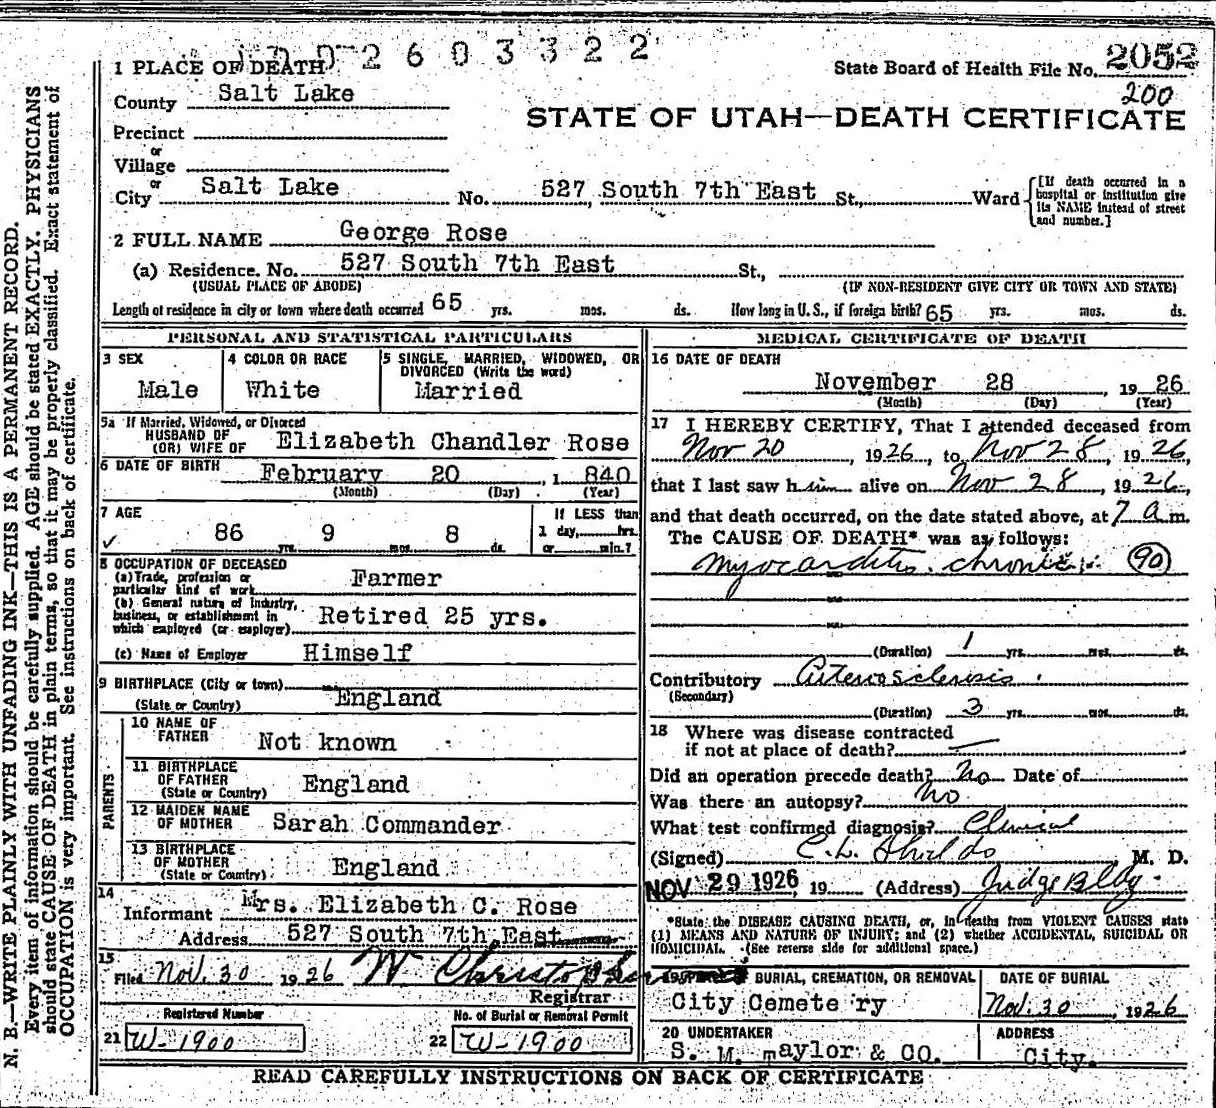 2603322
1 PLACE OF DEATH
State Board of Health File No. 2052
200
County Salt Lake
STATE OF UTAH—DEATH CERTIFICATE
Precinct
or
Village
or
City Salt Lake No. 527 South 7th East St., Ward [If death occurred in a hospital or institution give its NAME instead of street and number.]
2 FULL NAME George Rose
(a) Residence. No. 527 South 7th East St.,
(USUAL PLACE OF ABODE) (IF NON-RESIDENT GIVE CITY OR TOWN AND STATE)
Length of residence in city or town where death occurred 65 yrs. mos. ds. How long in U. S., if foreign birth? 65 yrs. mos. ds.
PERSONAL AND STATISTICAL PARTICULARS
3 SEX
Male
4 COLOR OR RACE
White
5 SINGLE, MARRIED, WIDOWED, OR
DIVORCED (Write the word)
Married
5a If Married, Widowed, or Divorced
HUSBAND OF
(OR) WIFE OF Elizabeth Chandler Rose
6 DATE OF BIRTH February 20, 1840
(Month) (Day) (Year)
7 AGE
86 yrs. 9 mos. 8 ds.
If LESS than
1 day, hrs.
or min.?
8 OCCUPATION OF DECEASED
(a) Trade, profession or
particular kind of work Farmer
(b) General nature of industry,
business, or establishment in
which employed (or employer) Retired 25 yrs.
(c) Name of Employer Himself
9 BIRTHPLACE (City or town)
(State or Country) England
PARENTS
10 NAME OF
FATHER Not known
11 BIRTHPLACE
OF FATHER
(State or Country) England
12 MAIDEN NAME
OF MOTHER Sarah Commander
13 BIRTHPLACE
OF MOTHER
(State or Country) England
14
Informant Mrs. Elizabeth C. Rose
Address 527 South 7th East
15
Filed Nov. 30 1926 W Christopherson
Registrar
Registered Number
21 W-1900
No. of Burial or Removal Permit
22 W-1900
MEDICAL CERTIFICATE OF DEATH
16 DATE OF DEATH
November 28 1926
(Month) (Day) (Year)
17 I HEREBY CERTIFY, That I attended deceased from
Nov 20, 1926, to Nov 28, 1926,
that I last saw him alive on Nov 28, 1926,
and that death occurred, on the date stated above, at 7 a m.
The CAUSE OF DEATH* was as follows:
Myocarditis. chronic. 90
(Duration) 1 yrs. mos. ds.
Contributory Arteriosclerosis.
(Secondary)
(Duration) 3 yrs. mos. ds.
18 Where was disease contracted
if not at place of death? —
Did an operation precede death? No Date of
Was there an autopsy? No
What test confirmed diagnosis? Clinical
(Signed) C. L. Shields, M. D.
NOV 29 1926, 19 (Address) Judge Bldg.
*State the DISEASE CAUSING DEATH, or, in deaths from VIOLENT CAUSES state
(1) MEANS AND NATURE OF INJURY; and (2) whether ACCIDENTAL, SUICIDAL OR
HOMICIDAL. (See reverse side for additional space.)
BURIAL, CREMATION, OR REMOVAL
City Cemete ry
DATE OF BURIAL
Nov. 30, 1926
20 UNDERTAKER
S. M. Taylor & CO.
ADDRESS
City.
READ CAREFULLY INSTRUCTIONS ON BACK OF CERTIFICATE
N. B.—WRITE PLAINLY WITH UNFADING INK—THIS IS A PERMANENT RECORD.
Every item of information should be carefully supplied. AGE should be stated EXACTLY. PHYSICIANS
should state CAUSE OF DEATH in plain terms, so that it may be properly classified. Exact statement of
OCCUPATION is very important. See instructions on back of certificate.